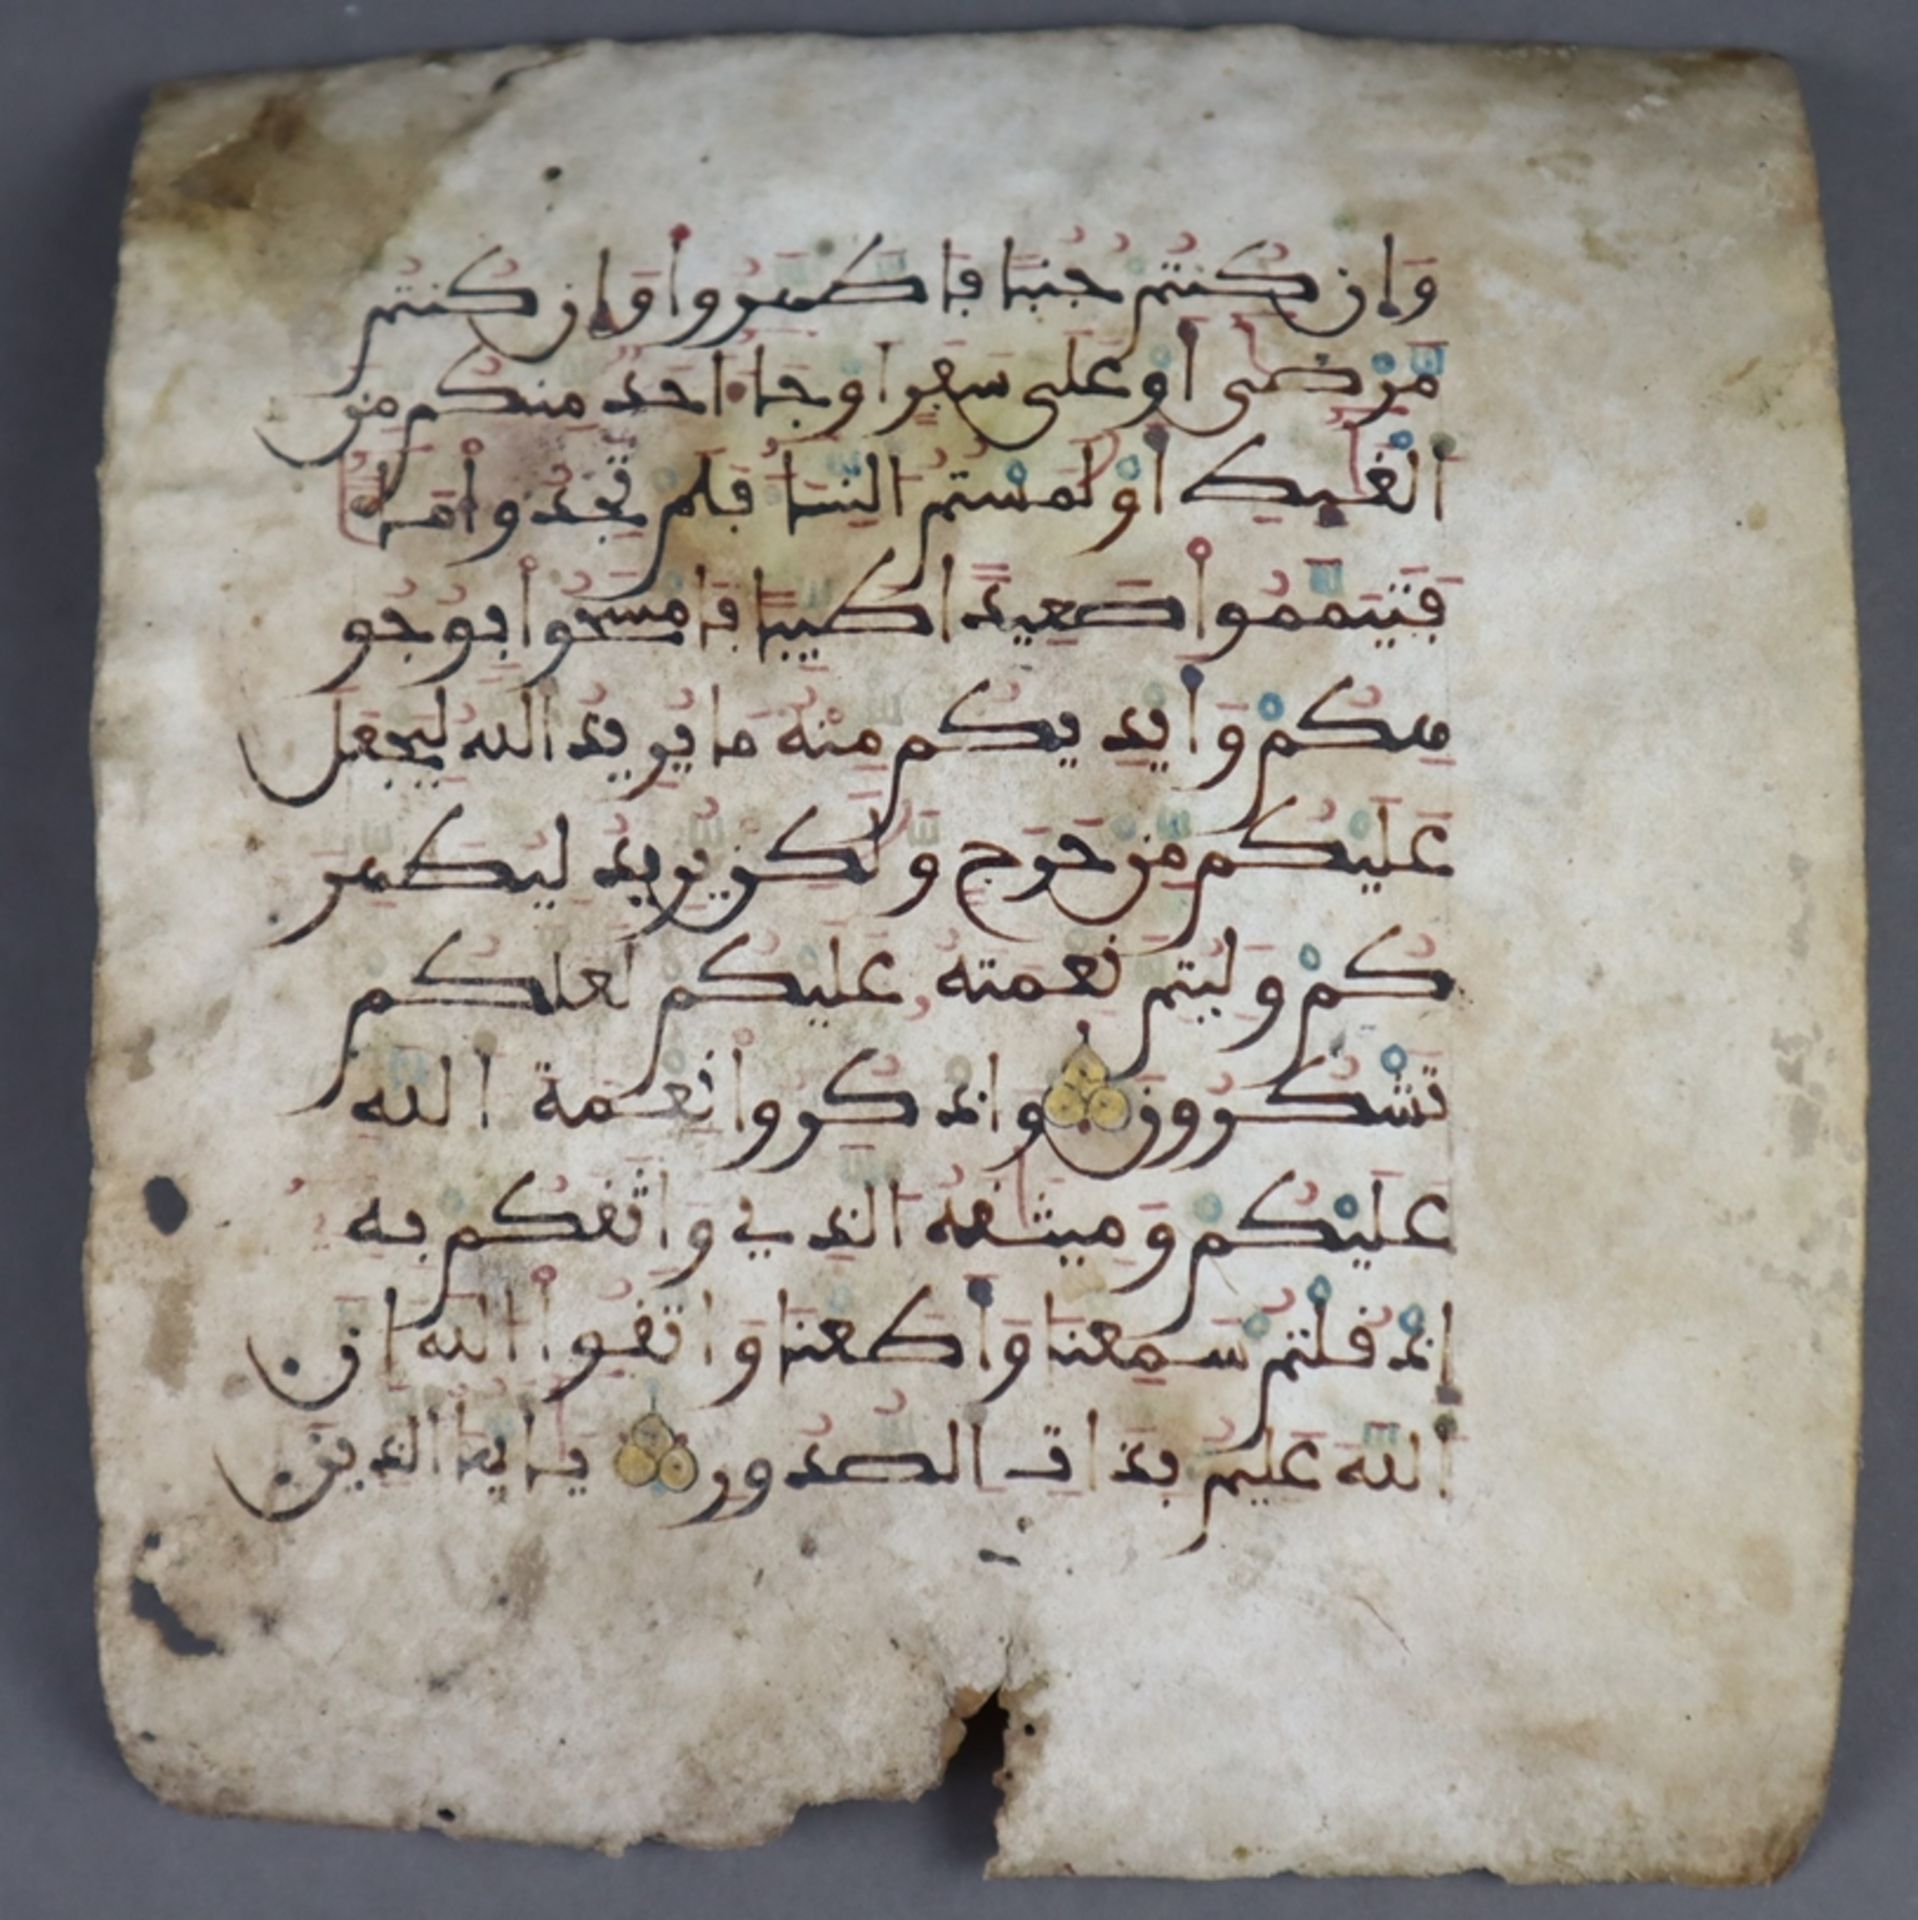 وَإِن كُنتُمْ جُنُبًا فَاطَّهَّرُوا وَإِن كُنتُم
مَّرْضَىٰ أَوْ عَلَىٰ سَفَرٍ اَوْ جَآءَ احَدٌ مِّنكُم مِّنَ
الْغَآئِطِ أَوْ لَٰمَسْتُمُ النِّسَآءَ فَلَمْ تَجِدُوا مَآءً
فَتَيَمَّمُوا صَعِيدًا طَيِّبًا فَامْسَحُوا بِوُجُو
هِكُمْ وَأَيْدِيكُم مِّنْهُ مَا يُرِيدُ اللَّهُ لِيَجْعَلَ
عَلَيْكُم مِّنْ حَرَجٍ وَلَٰكِن يُرِيدُ لِيُطَهِّرَ
كُمْ وَلِيُتِمَّ نِعْمَتَهُ عَلَيْكُمْ لَعَلَّكُمْ
تَشْكُرُونَ وَاذْكُرُوا نِعْمَةَ اللَّهِ
عَلَيْكُمْ وَمِيثَٰقَهُ الَّذِي وَاثَقَكُم بِهِ
إِذْ قُلْتُمْ سَمِعْنَا وَأَطَعْنَا وَاتَّقُوا اللَّهَ إِنَّ
اللَّهَ عَلِيمٌ بِذَاتِ الصُّدُورِ يَٰأَيُّهَا الَّذِينَ